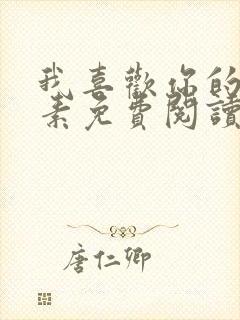 我喜歡你的
素免費閱讀
唐仁卿